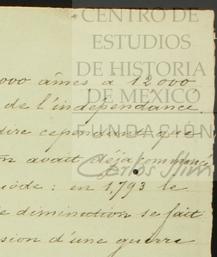 CENTRO DE
ESTUDIOS
DE HISTORIA
DE MÉXICO
FUNDACIÓN
Carlos Slim
000 âmes a 12000
de l'indépendance.
dire cependant que
on avait déja commencé
iode : en 1793 le
e diminution se fait
sion d'une guerre